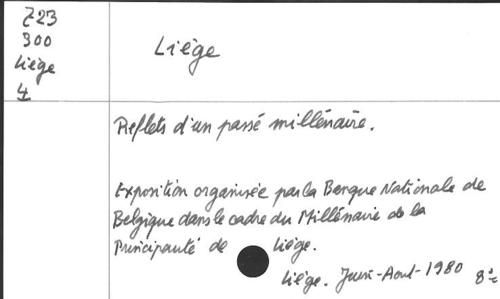 Z23
300
Liège
4
Liège
Reflets d'un passé millénaire.
Exposition organisée par la Banque Nationale de
Belgique dans le cadre du Millénaire de la
Principauté de Liège.
Liège. Juin-Aout-1980 8°